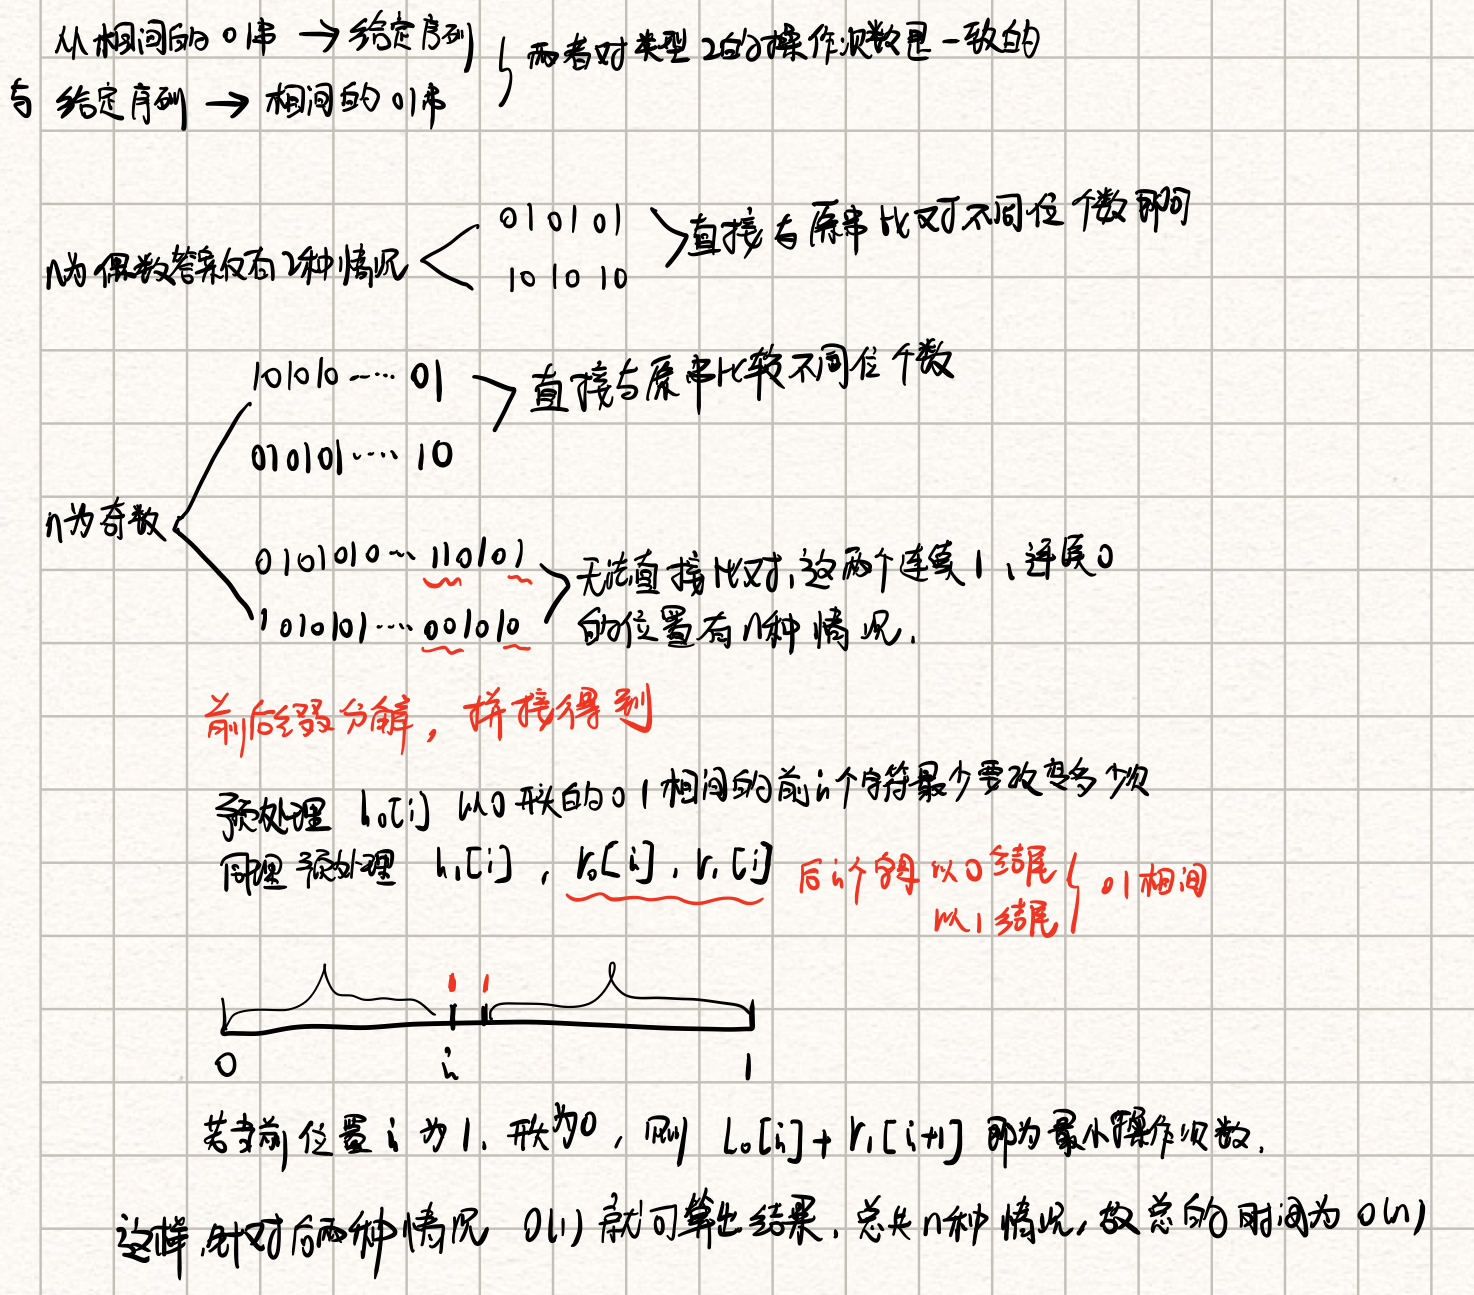 从相间的01串 → 给定序列
与 给定序列 → 相间的01串
两者对类型2的操作次数是一致的
n为偶数答案仅有2种情况
010101
101010
直接与原串比对不同位个数即可
n为奇数
101010····· 01
010101···· 10
直接与原串比较不同位个数
0101010··· 110101
1010101···· 001010
无法直接比对,这两个连续1、连续0
的位置有n种情况.
前后缀分解,拼接得到
预处理 l₀[i] 以0开头的01相间的前i个字符最少要改变多少次
同理预处理 l₁[i] , r₀[i], r₁[i]
后i个字母 以0结尾
以1结尾
01相间
1 1
0 i 1
若当前位置i为1.开头为0,则 l₀[i]+r₁[i+1] 即为最小操作次数.
这样,针对后两种情况 O(1) 就可算出结果.总共n种情况,故总的时间为O(n)